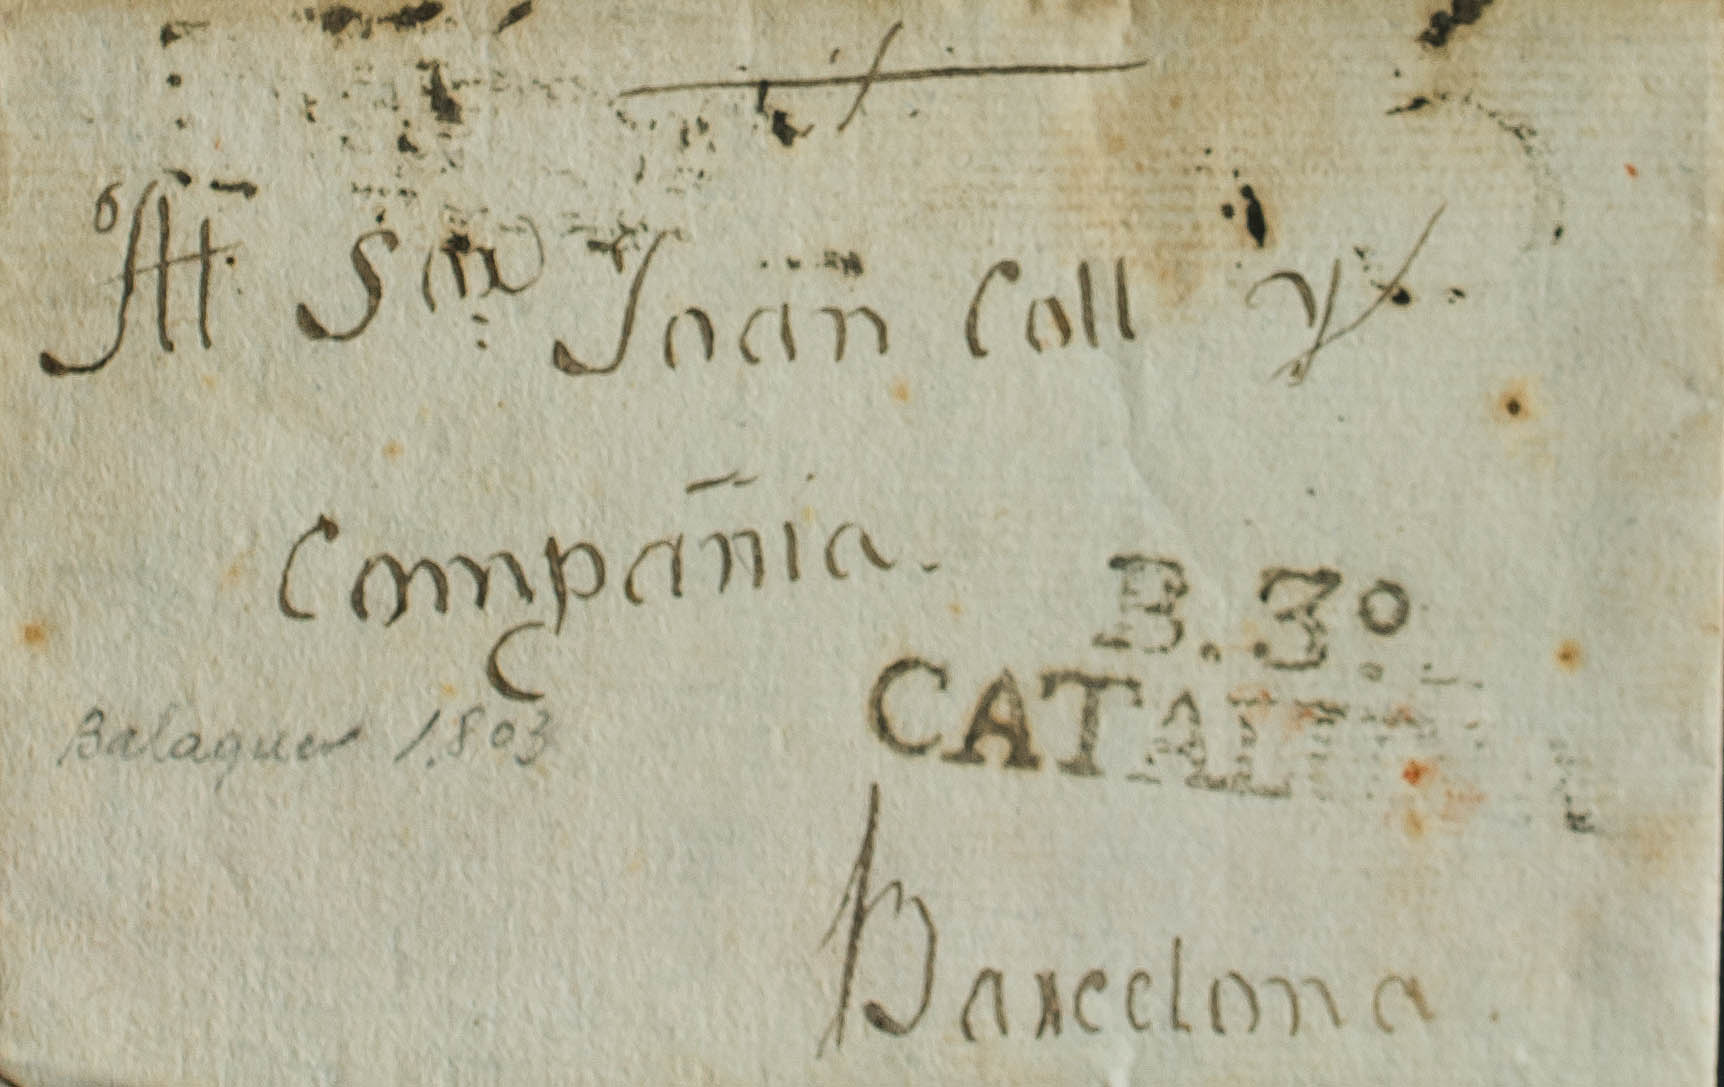 Al Sor. Joan Coll y
Compañia.
B.3º
CATAL
Balaguer 1.803
Barcelona.